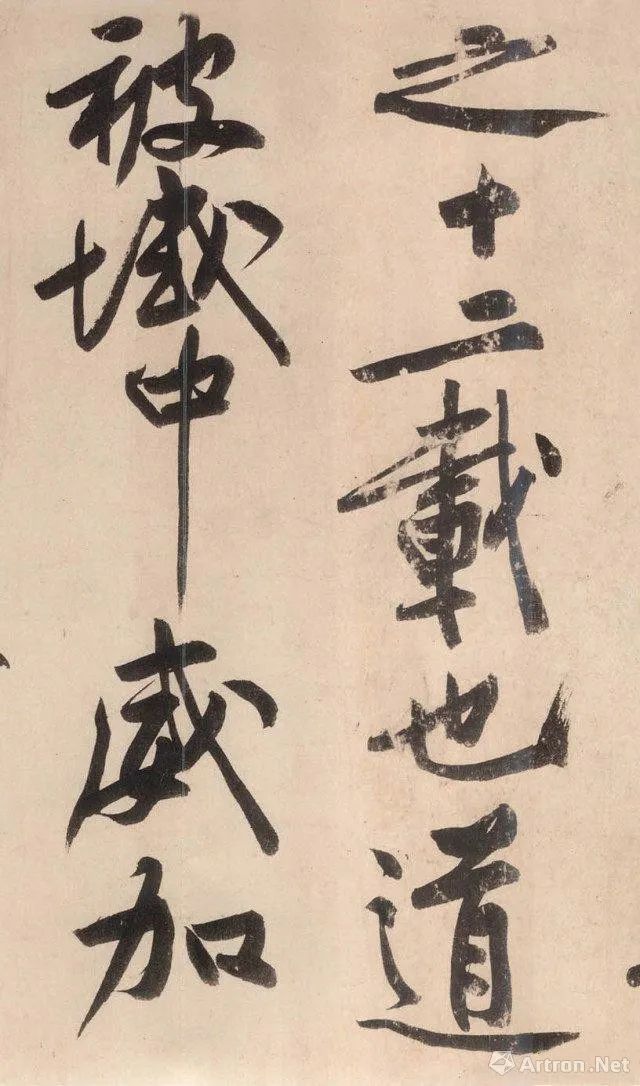 之十二載也道
被域中威加
Artron.Net